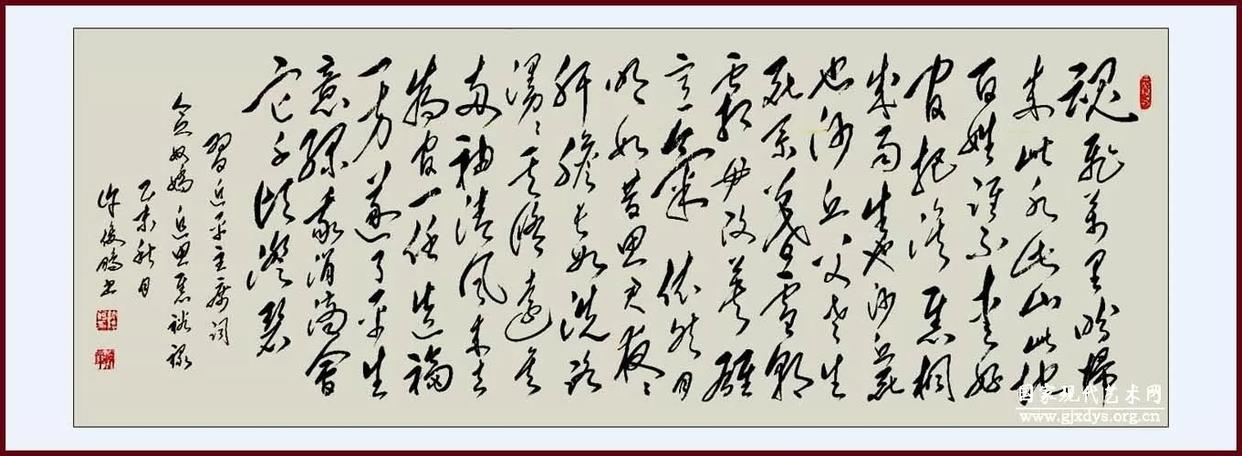 魂飛萬里盼歸
来此水此山此地
百姓谁不愛好
官把淚焦桐
成雨生也沙丘死
也沙丘父老生
死系暮雪朝
霜毋改英雄
意氣依然月
明如昔思君夜々
肝膽長如洗路
漫々其修遠矣
两袖清風来去
為官一任造福
一方遂了平生
意绿我涓滴會
它千顷澄碧
習近平主席词
念奴嬌追思焦裕禄
乙未秋月
许俊鹏书
国家现代艺术网
www.gjxdys.org.cn